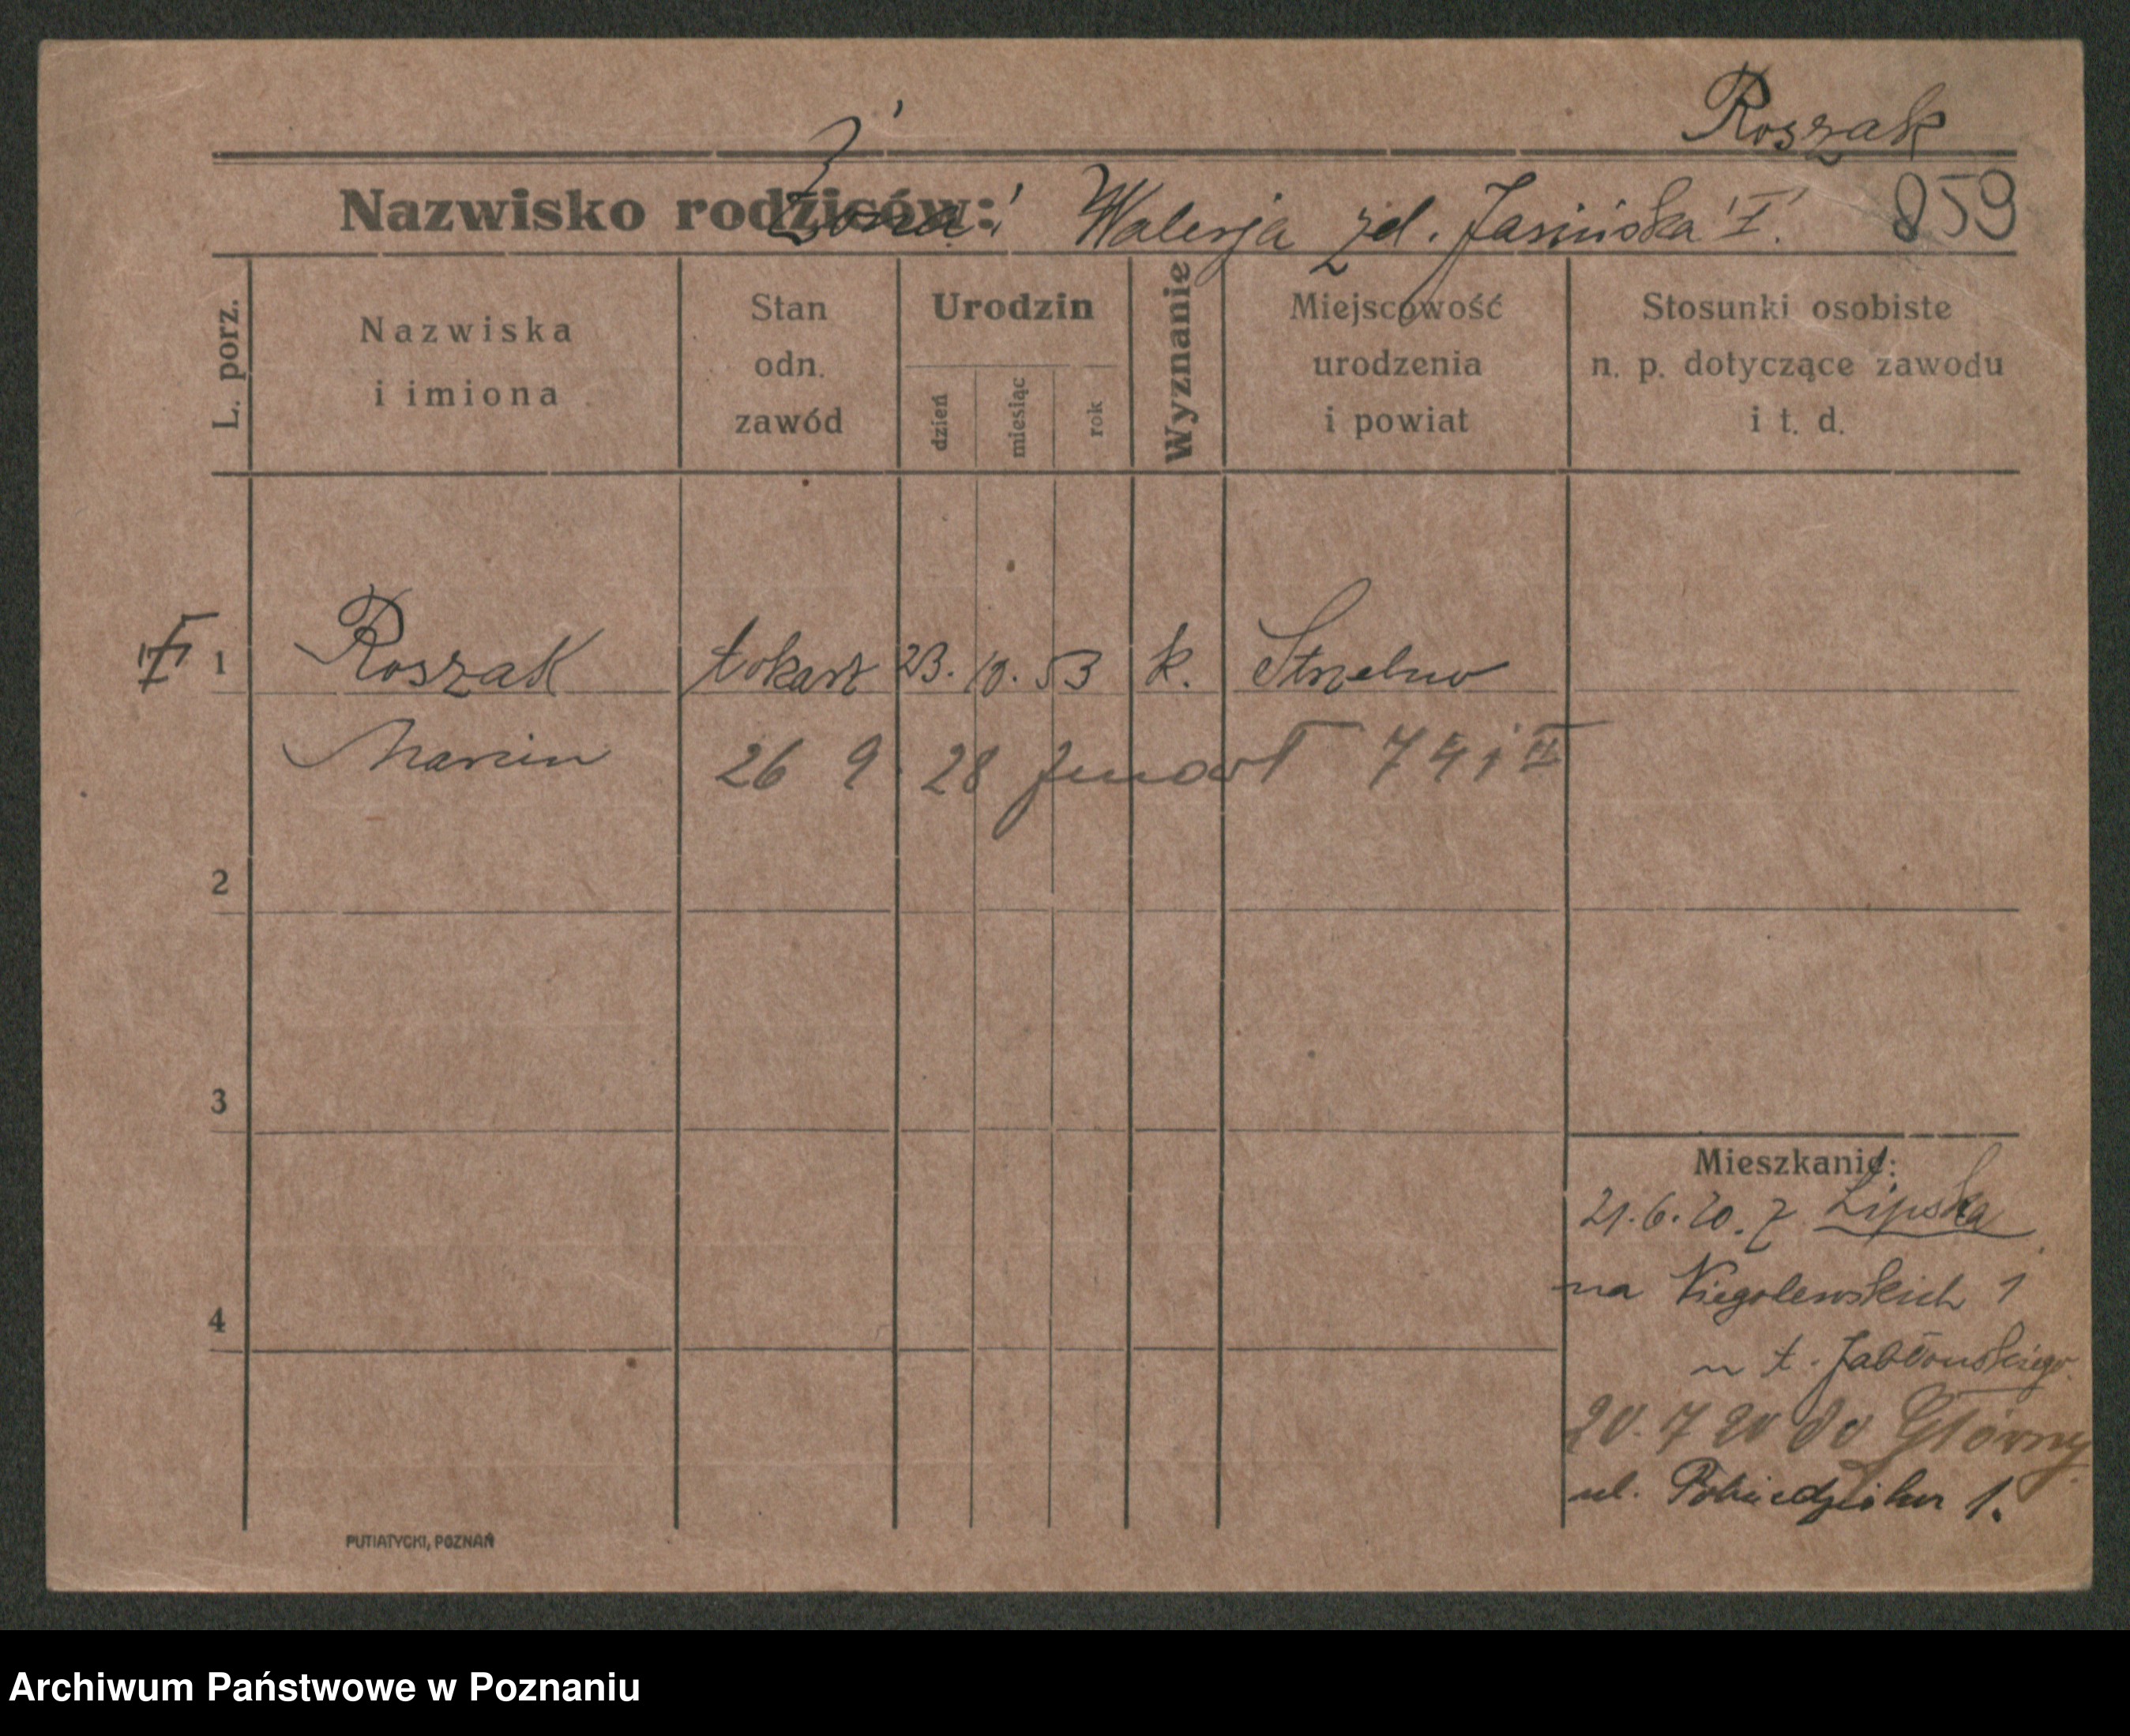 Roszak
Nazwisko rodziców:
Żona: Walerja zd. Jasińska "I".
859
L. porz.
Nazwiska
i imiona
Stan
odn.
zawód
Urodzin
dzień
miesiąc
rok
Wyznanie
Miejscowość
urodzenia
i powiat
Stosunki osobiste
n. p. dotyczące zawodu
i t. d.
1 Roszak tokarz 23. 10. 53 k. Strzelno
Marcin 26 9 28
2
3
4
Mieszkanie:
21.6.20. z Lipska
na Niegolewskich 1
u t. Jabłońskiego
20. 7 20 do Główny
ul. 1.
PUTIATYCKI, POZNAŃ
Archiwum Państwowe w Poznaniu